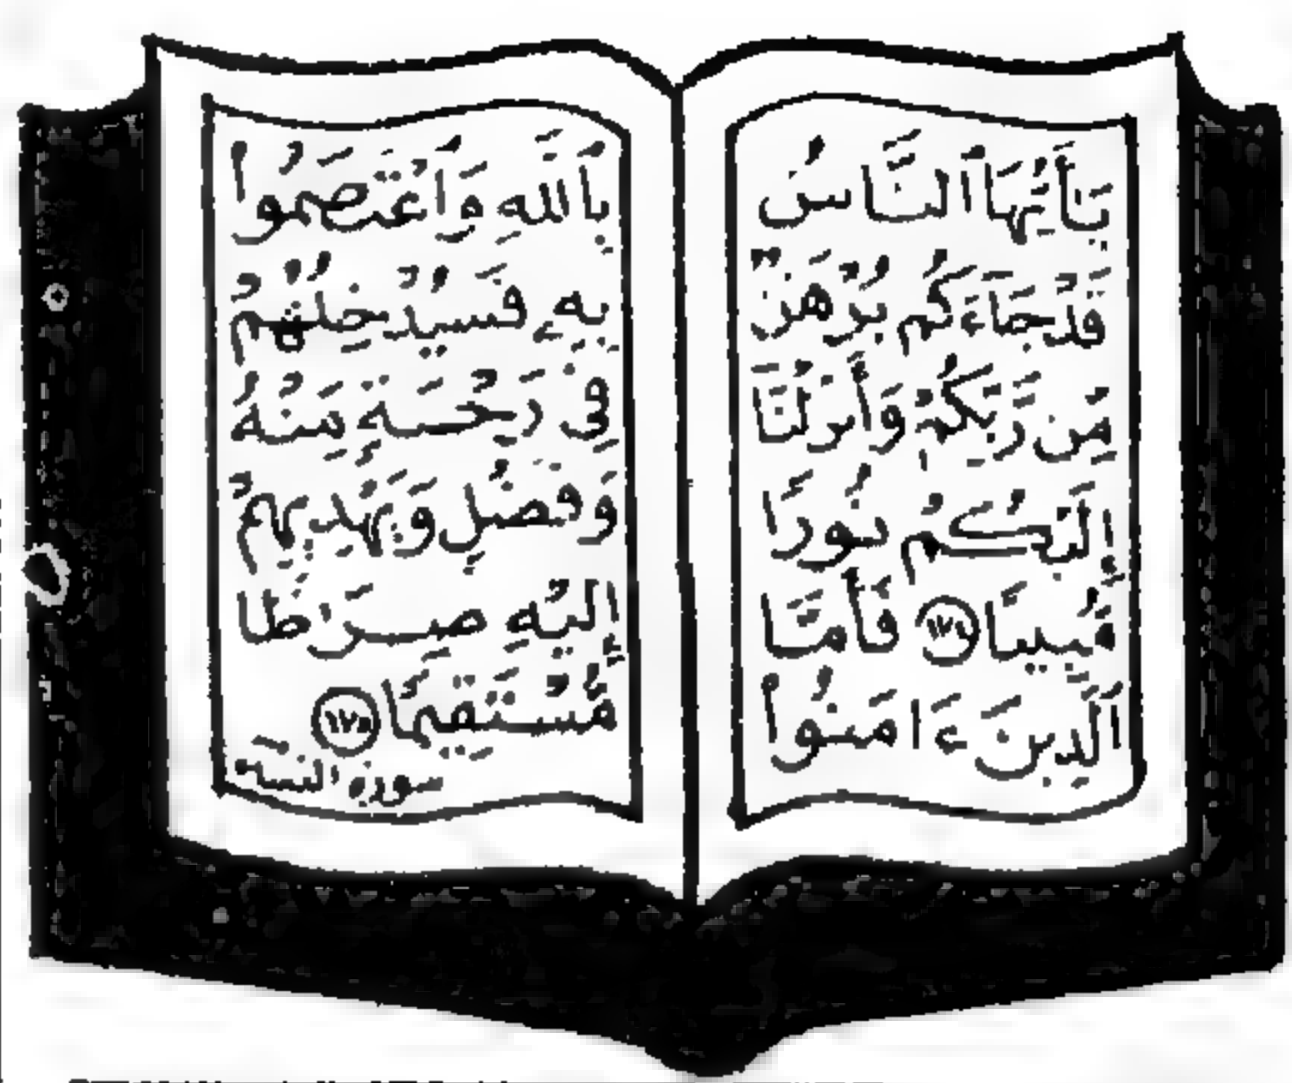 يَٰٓأَيُّهَا ٱلنَّاسُ
قَدْ جَآءَكُم بُرْهَٰنٌ
مِّن رَّبِّكُمْ وَأَنزَلْنَآ
إِلَيْكُمْ نُورًا
مُّبِينًا ١٧٤ فَأَمَّا
ٱلَّذِينَ ءَامَنُوا۟
بِٱللَّهِ وَٱعْتَصَمُوا۟
بِهِۦ فَسَيُدْخِلُهُمْ
فِى رَحْمَةٍ مِّنْهُ
وَفَضْلٍ وَيَهْدِيهِمْ
إِلَيْهِ صِرَٰطًا
مُّسْتَقِيمًا ١٧٥
سورة النساء